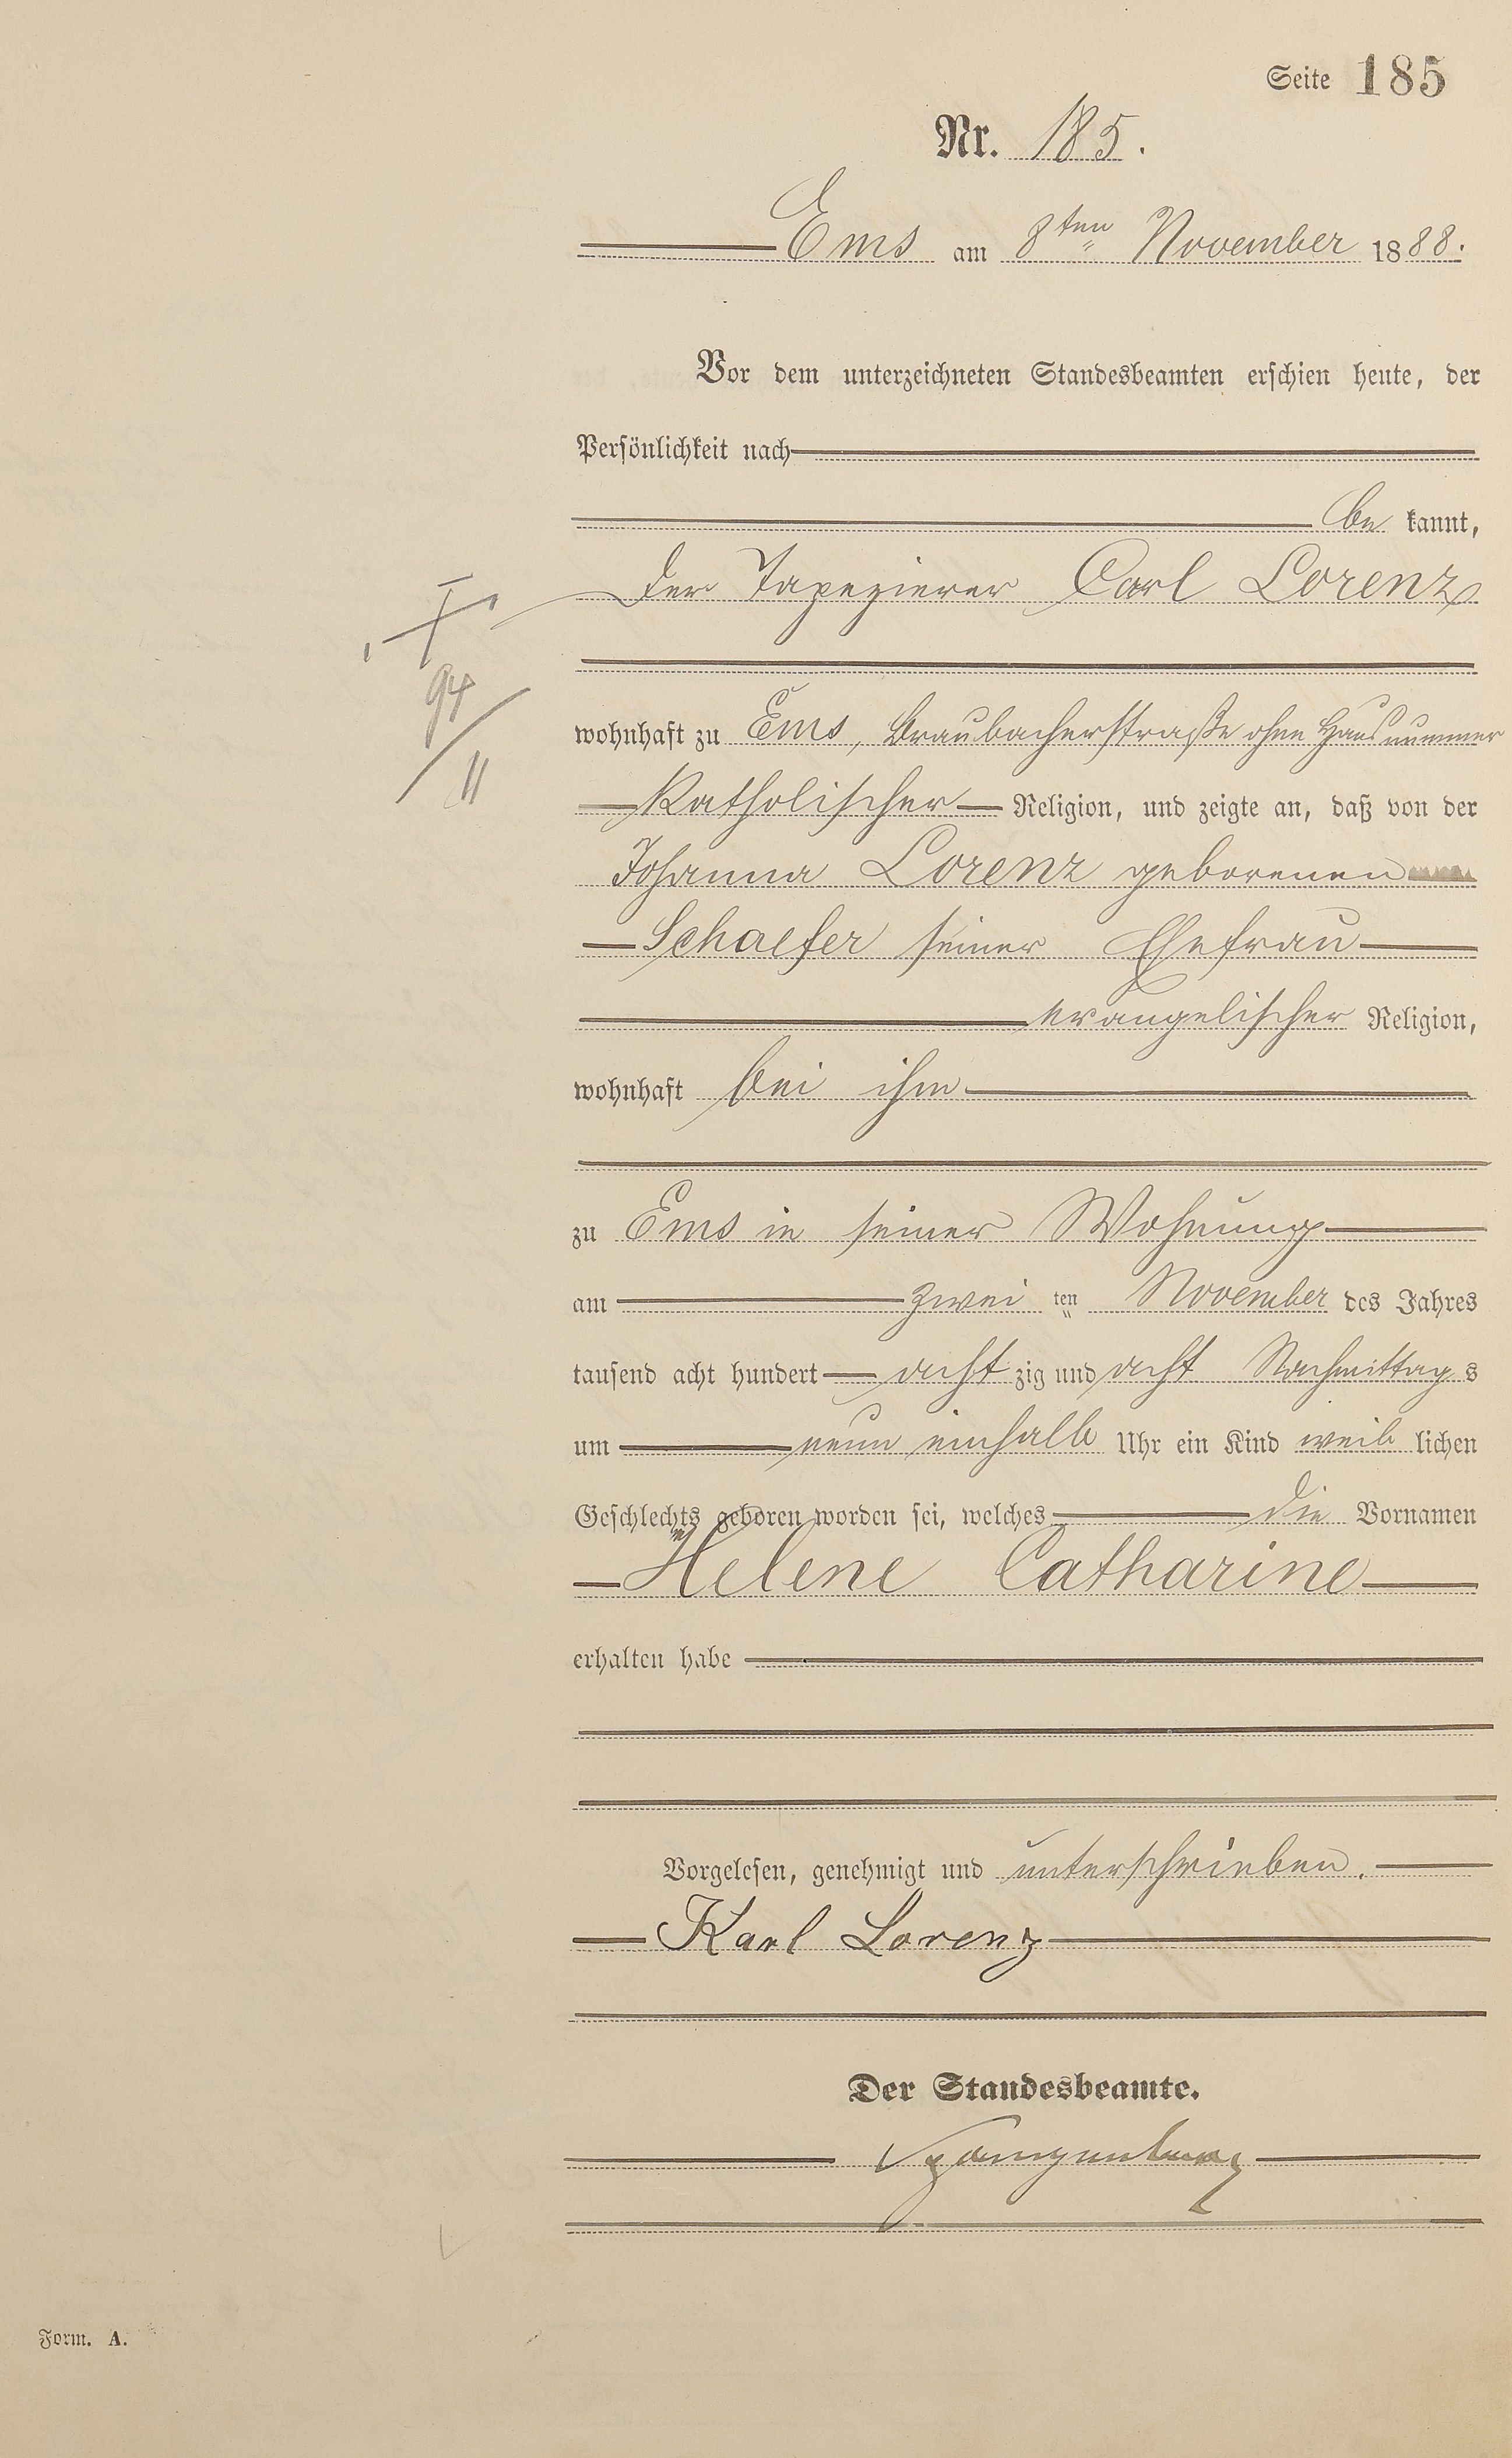 Seite 185
Nr. 185.
Ems am 8ten November 1888.
Vor dem unterzeichneten Standesbeamten erschien heute, der
Persönlichkeit nach
be kannt,
der Tapezierer Carl Lorenz
94
11
wohnhaft zu Ems, Braubacherstraße ohne Hausnummer
katholischer Religion, und zeigte an, daß von der
Johanna Lorenz geborenen
Schaefer seiner Ehefrau
evangelischer Religion,
wohnhaft bei ihm
zu Ems in seiner Wohnung
am zwei ten November des Jahres
tausend acht hundert acht zig und acht Nachmittag s
um neun einhalb Uhr ein Kind weib lichen
Geschlechts geboren worden sei, welches die Vornamen
Helene Catharine
erhalten habe
Vorgelesen, genehmigt und unterschrieben.
Karl Lorenz
Der Standesbeamte.
Spangenberg
Form. A.